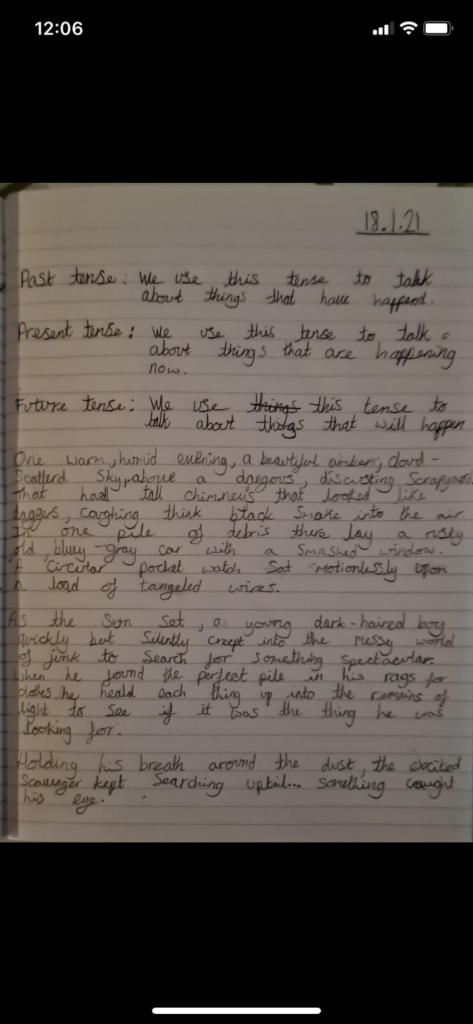 12:06
18.1.21
Past tense: We use this tense to talk
about things that have happend.
Present tense: We use this tense to talk
about things that are happening
now.
Future tense: We use things this tense to
talk about things that will happen
One warm, humid evening, a beautiful amber, cloud-
Scatterd Sky, above a dangous, discusting Scrapyard
That had tall chimneys that looked like
daggers, coughing think black Smoke into the air
In one pile of debris there lay a rusty
old, bluey-gray car with a Smashed window.
A Circular pocket watch Sat motionlessly upon
A load of tangeled wires.
As the Sun Set, a young dark-haired boy
quickly but Silently creept into the messy world
of junk to Search for Something Spectacular.
When he found the perfect pile in his rags for
clothes, he heald each thing up into the remains of
light to See if it was the thing he was
looking for.
Holding his breath around the dust, the excited
Scavenger kept Searching until... Something caught
his eye.